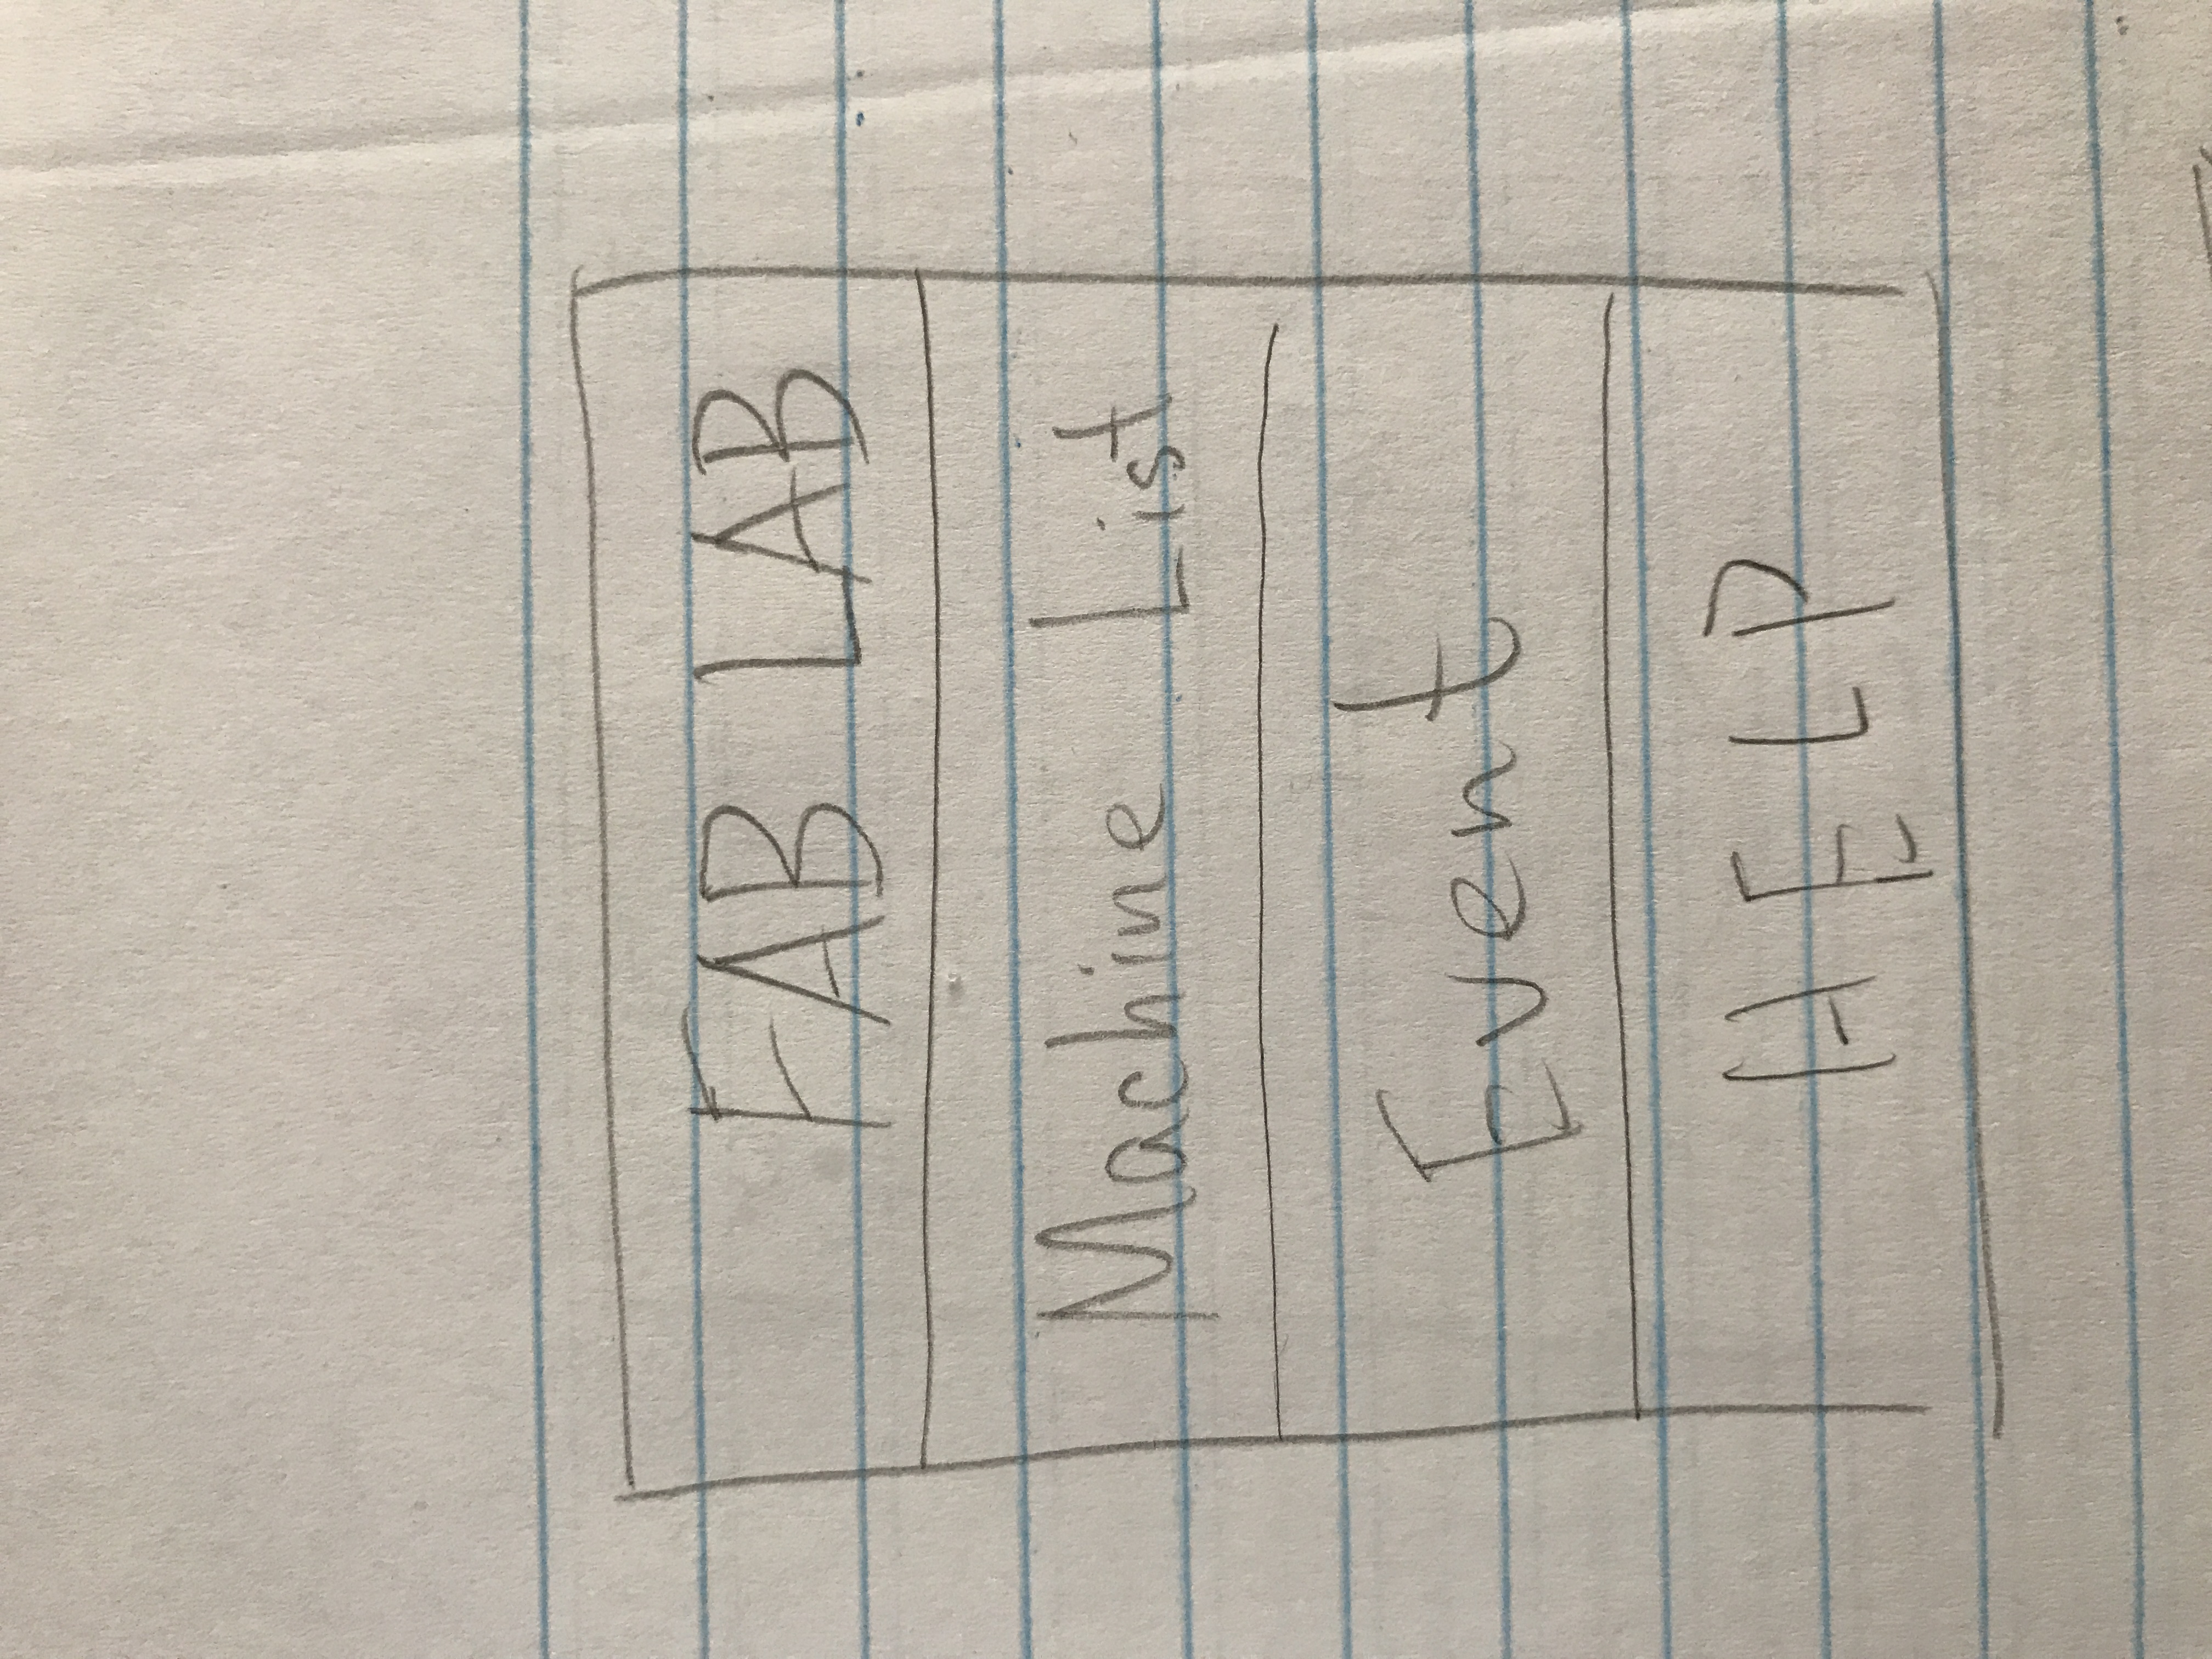 FAB LAB
Machine List
Event
HELP